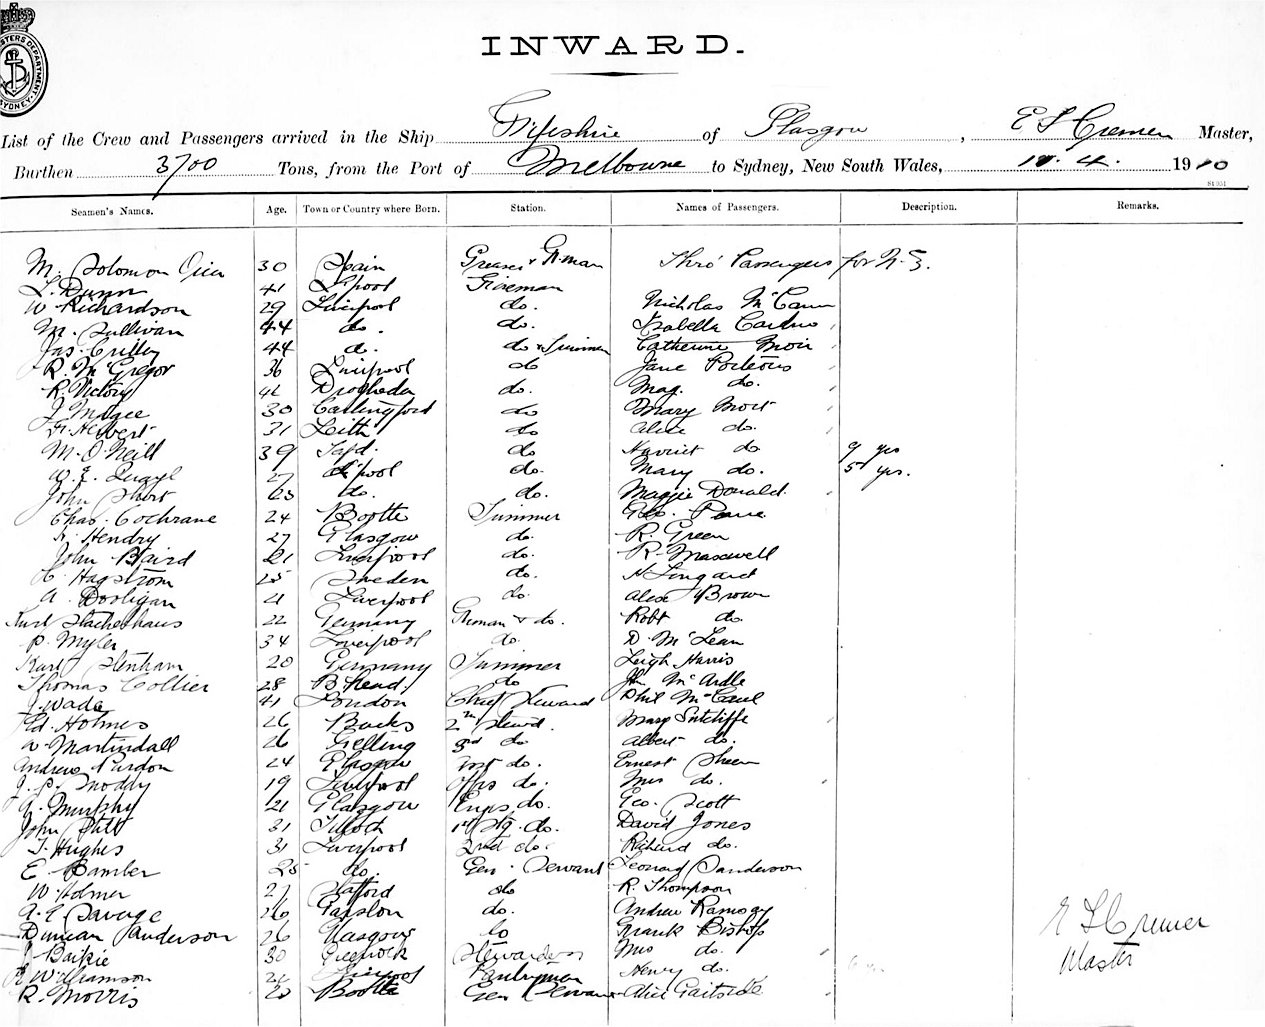 INWARD.
List of the Crew and Passengers arrived in the Ship Fifeshire of Glasgow, E S Cremer Master,
Burthen 3700 Tons, from the Port of Melbourne to Sydney, New South Wales, 4. 1910
Seamen's Names. Age. Town or Country where Born. Station. Names of Passengers. Description. Remarks.
M. Solomon 30 Spain Greaser & Fireman Thro' Passengers for N.Z.
L. Dunn 41 L'pool Fireman
W Richardson 29 Liverpool do. Nicholas McCann
M. Sullivan 44 do. do. Isabella
Jas. Crilley 44 do. do & Trimmer Catherine Moir
R. McGregor 36 Liverpool do Jane Porteous
R. Victory Drogheda do. Mag. do.
J McGee 30 Carlingford do Mary Mort
Herbert 31 Leith do Alice do.
M. O'Neill 39 do Harriet do 9 yrs
27 L'pool do. Mary do. 5 yrs.
John Short do. do. Maggie Donald.
Chas. Cochrane 24 Bootle Trimmer Geo.
Hendry 27 Glasgow do. R. Green
John Baird 21 Liverpool do. R. Maxwell
Hagstrom 25 Sweden do. H Lingard
A. Dooligan 21 Liverpool do. Alex Brown
Kurt Stackelhaus 22 Germany F'man & do. Robt do.
P. Myler 34 Liverpool do. D. McLean
Karl Stenham 20 Germany Trimmer Leigh Harris
Thomas Collier 28 B'head. do McArdle
J. Wade 41 London Chief Steward Phil McCaul
Ed. Holmes 26 Bucks 2nd Stewd. Mary Sutcliffe
W. Martindall 26 Gelling 3rd do Albert do.
Andrew Purdon 24 Glasgow do. Ernest Sheen
J. P. Moody 19 Liverpool Offrs do. Mrs do.
A. Murphy 21 Glasgow Engs do. Geo. Scott
John 31 1st Stg. do. David Jones
T. Hughes 31 Liverpool 2nd do. Richard do.
E Bamber 25 do. Gen. Servant Leonard Sanderson
W. Holmer 27 Stafford do R. Thompson
A. E Savage 26 Garston do. Andrew Ramsay
Duncan Sanderson 26 Glasgow do Frank Bishop
Baikie 30 Greenock Stewardess Mrs do.
Williamson 22 Liverpool Pantryman Henry do.
R. Morris Bootle Gen Servant Alice Gartside
E S Cremer
Master